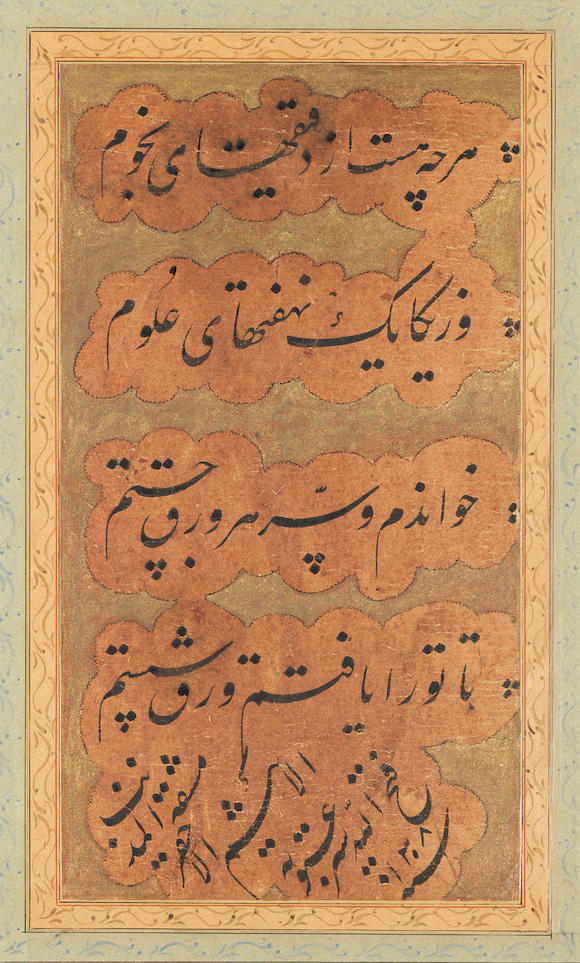 هرچه هست از دقیقهای نجوم
وز یکایک نهفتهای علوم
خواندم و سرّ هر ورق جستم
تا تو را یافتم ورق شستم
مشقه